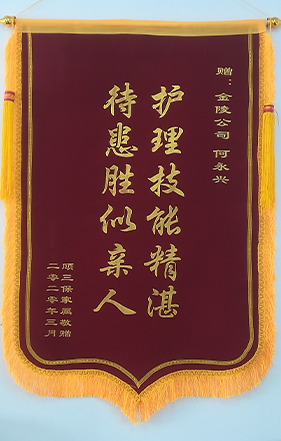 赠：金陵公司 何永兴
护理技能精湛
待患胜似亲人
顾三保家属敬赠
二零二零年三月